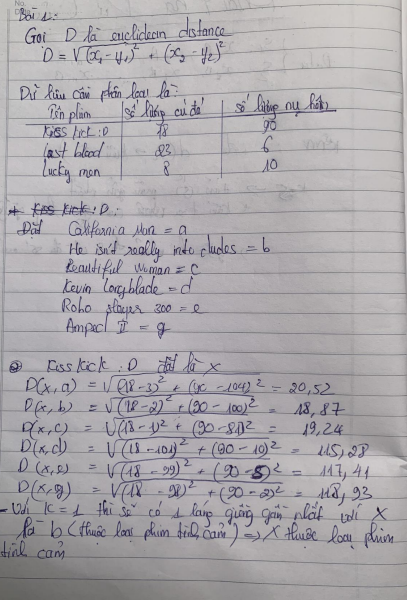 Bài 1:
Gọi D là euclidean distance
D = √(x₁ - y₁)² + (x₂ - y₂)²
Dữ liệu cần phân loại là:
Tên phim | số lượng cú đá | số lượng nụ hôn
Kiss kick :D | 18 | 90
Last blood | 23 | 6
Lucky man | 8 | 10
+ Kiss kick : D :
Đặt California Man = a
He isn't really into dudes = b
Beautiful woman = c
Kevin Longblade = d
Robo slayer 300 = e
Amped II = g
Kiss kick : D đặt là X
D(x, a) = √(18-3)² + (90 - 104)² = 20,52
D(x, b) = √(18-2)² + (90 - 100)² = 18,87
D(x, c) = √(18-1)² + (90 - 81)² = 19,24
D(x, d) = √(18 - 101)² + (90 - 10)² = 115,28
D(x, e) = √(18 - 99)² + (90 - 5)² = 117,41
D(x, g) = √(18 - 98)² + (90 - 2)² = 118,93
- Với K = 1 thì sẽ có 1 láng giềng gần nhất với X
là b (thuộc loại phim tình cảm) => X thuộc loại phim
tình cảm